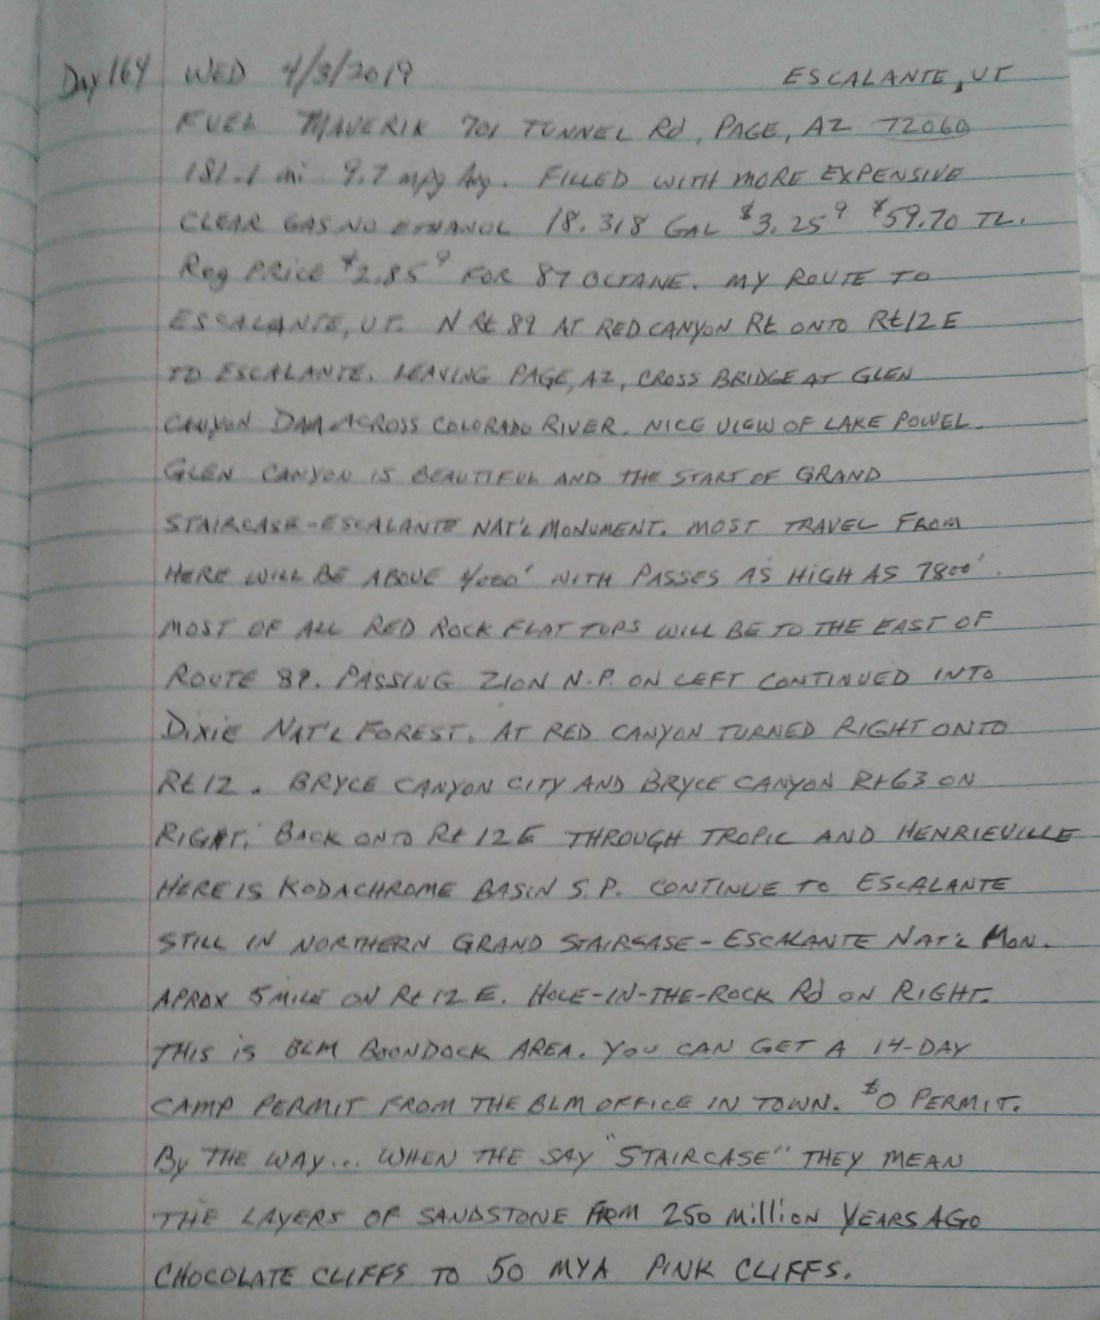 Day 164 WED 4/3/2019 ESCALANTE, UT
FUEL MAVERIK 701 TUNNEL Rd, PAGE, AZ 72060
181.1 mi 9.7 mpg Avg. FILLED WITH MORE EXPENSIVE
CLEAR GAS NO ETHANOL 18.318 GAL $3.25⁹ $59.70 TL.
Reg PRICE $2.85⁹ FOR 87 OCTANE. MY ROUTE TO
ESCALANTE, UT. N Rt 89 AT RED CANYON Rt ONTO Rt 12 E
TO ESCALANTE. LEAVING PAGE, AZ, CROSS BRIDGE AT GLEN
CANYON DAM ACROSS COLORADO RIVER. NICE VIEW OF LAKE POWEL.
GLEN CANYON IS BEAUTIFUL AND THE START OF GRAND
STAIRCASE-ESCALANTE NAT'L MONUMENT. MOST TRAVEL FROM
HERE WILL BE ABOVE 4000' WITH PASSES AS HIGH AS 7800'.
MOST OF ALL RED ROCK FLAT TOPS WILL BE TO THE EAST OF
ROUTE 89. PASSING ZION N.P. ON LEFT CONTINUED INTO
DIXIE NAT'L FOREST. AT RED CANYON TURNED RIGHT ONTO
Rt 12. BRYCE CANYON CITY AND BRYCE CANYON Rt 63 ON
RIGHT. BACK ONTO Rt 12 E THROUGH TROPIC AND HENRIEVILLE
HERE IS KODACHROME BASIN S.P. CONTINUE TO ESCALANTE
STILL IN NORTHERN GRAND STAIRCASE-ESCALANTE NAT'L MON.
APROX 5 MILE ON Rt 12 E. HOLE-IN-THE-ROCK Rd ON RIGHT.
THIS IS BLM BOONDOCK AREA. YOU CAN GET A 14-DAY
CAMP PERMIT FROM THE BLM OFFICE IN TOWN. $0 PERMIT.
By THE WAY... WHEN THE SAY "STAIRCASE" THEY MEAN
THE LAYERS OF SANDSTONE FROM 250 MILLION YEARS AGO
CHOCOLATE CLIFFS TO 50 MYA PINK CLIFFS.